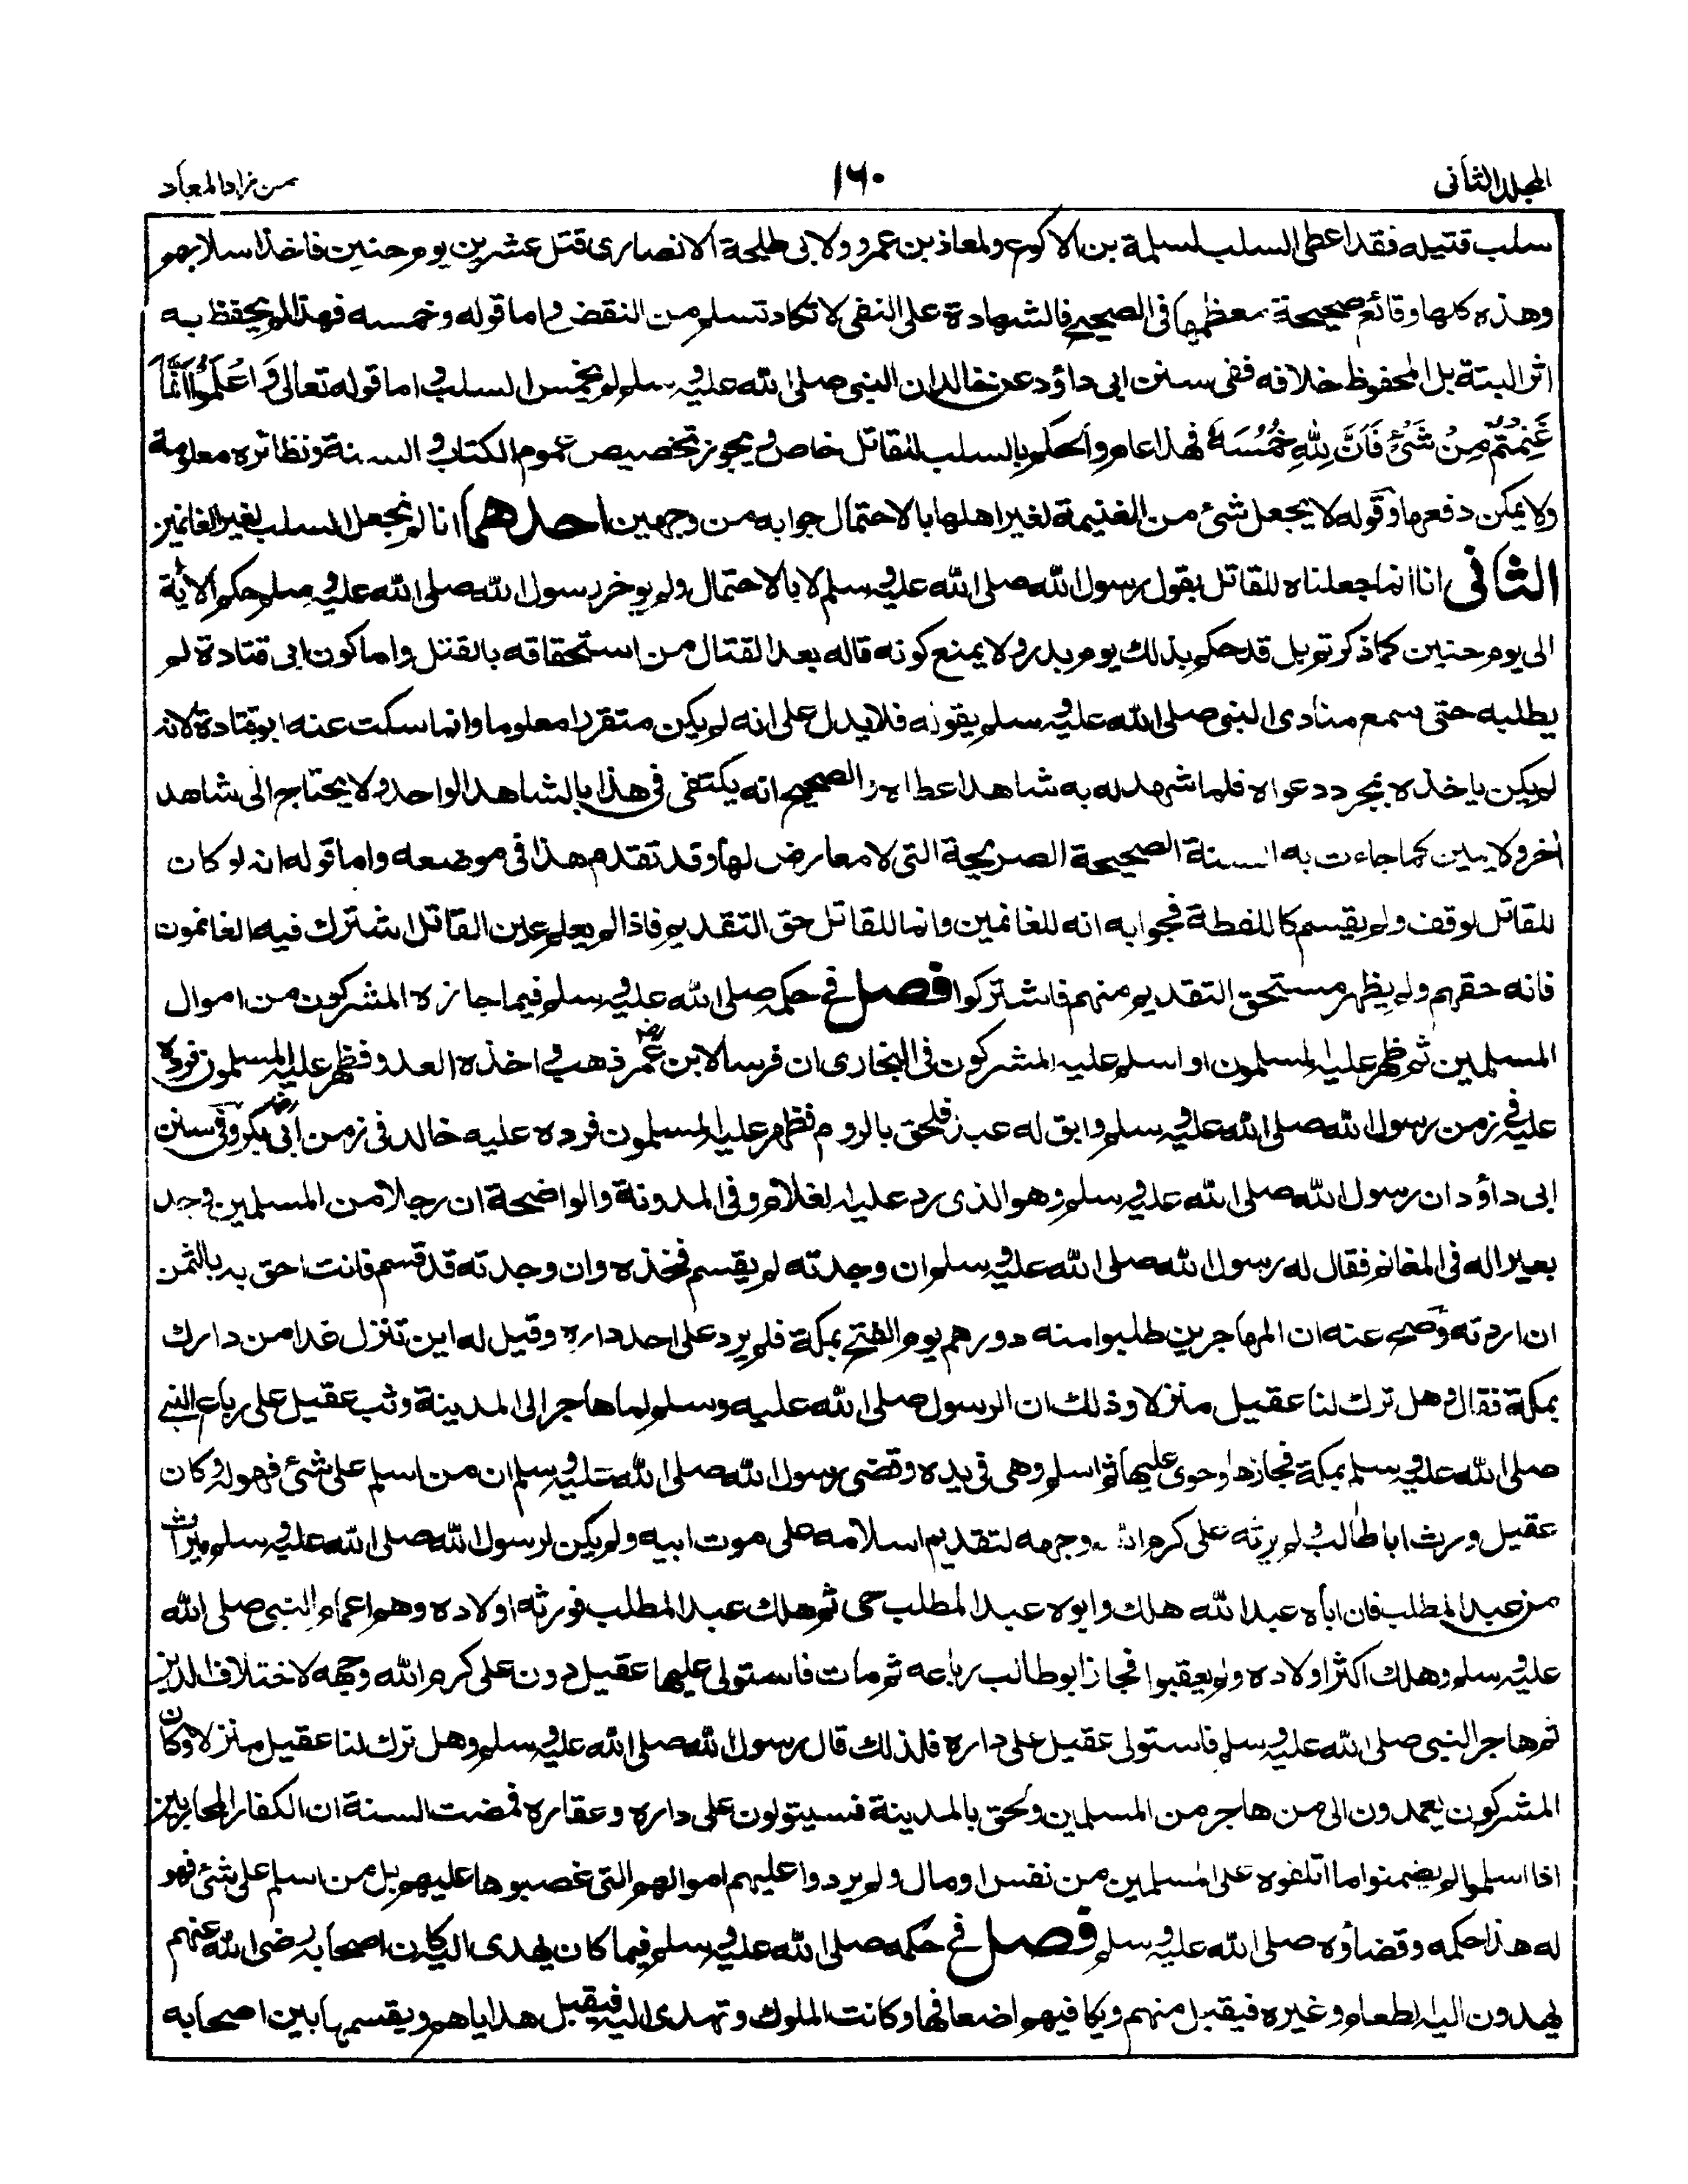 المجلد الثانی
۱۶۰
من زاد المعاد
سلب قتیله فقد اعطی السلب لسلمة بن الاکوع ولمعاذ بن عمرو ولابی طلیحة الانصاری قتل عشرین یوم حنین فاخذ اسلابهم
وهذه کلها وقائع صحیحة معظمها فی الصحیح فالشهادة علی النفی لا تکاد تسلم من النقض واما قوله وخمسه فهذا لم یحفظ به
اثر البتة بل المحفوظ خلافه ففی سنن ابی داؤد عن خالد ان النبی صلی الله علیه وسلم لم یخمس السلب واما قوله تعالی وَاعْلَمُوْا اَنَّمَا
غَنِمْتُمْ مِنْ شَیْئٍ فَاَنَّ لِلّٰهِ خُمُسَهٗ فهذا عام والحکم بالسلب للقاتل خاص ویجوز تخصیص عموم الکتاب والسنة ونظائره معلومة
ولا یمکن دفعها وقوله لا یجعل شئ من الغنیمة لغیر اهلها بالاحتمال جوابه من وجهین احدهما انا لم نجعل السلب لغیر الغانمین
الثانی انا انما جعلناه للقاتل بقول رسول الله صلی الله علیه وسلم لا بالاحتمال ولم یوخر رسول الله صلی الله علیه وسلم حکم الآیة
الی یوم حنین کما ذکرتم بل قد حکم بذلك یوم بدر ولا یمنع کونه قاله بعد القتال من استحقاقه بالقتل واما کون ابی قتادة لم
یطلبه حتی سمع منادی النبی صلی الله علیه وسلم یقوله فلا یدل علی انه لم یکن متقررا معلوما وانما سکت عنه ابو قتادة لانه
لم یکن یاخذه بمجرد دعواه فلما شهد له به شاهد اعطاه والصحیح انه یکتفی فی هذا بالشاهد الواحد ولا یحتاج الی شاهد
اخر ولا یمین کما جاءت به السنة الصحیحة الصریحة التی لا معارض لها وقد تقدم هذا فی موضعه واما قوله انه لو کان
للقاتل لوقف ولم یقسم کاللقطة فجوابه انه للغانمین وانما للقاتل حق التقدیم فاذا لم یعلم عین القاتل اشترك فیه الغانمون
فانه حقهم ولم یظهر مستحق التقدیم منهم فاشترکوا فصل فی حکمه صلی الله علیه وسلم فیما حازه المشرکون من اموال
المسلمین ثم ظهر علیه المسلمون او اسلم علیه المشرکون فی البخاری ان فرسا لابن عمر رض ذهب واخذه العدو فظهر علیه المسلمون فرده
علیه فی زمن رسول الله صلی الله علیه وسلم وابق له عبد فلحق بالروم فظهر علیه المسلمون فرده علیه خالد فی زمن ابی بکر رض وفی سنن
ابی داؤد ان رسول الله صلی الله علیه وسلم وهو الذی رد علیه الغلام وفی المدونة والواضحة ان رجلا من المسلمین وجد
بعیرا له فی المغانم فقال له رسول الله صلی الله علیه وسلم ان وجدته لم یقسم فخذه وان وجدته قد قسم فانت احق به بالثمن
ان اردته وصح عنه ان المهاجرین طلبوا منه دورهم یوم الفتح بمکة فلم یرد علی احد داره وقیل له این تنزل غدا من دارك
بمکة فقال وهل ترك لنا عقیل منزلا وذلك ان الرسول صلی الله علیه وسلم لما هاجر الی المدینة وثب عقیل علی رباع النبی
صلی الله علیه وسلم بمکة فحازها وحوی علیها ثم اسلم وهی فی یده وقضی رسول الله صلی الله علیه وسلم ان من اسلم علی شئ فهو له وکان
عقیل ورث ابا طالب ولم یرثه علی کرم الله وجهه لتقدیم اسلامه علی موت ابیه ولم یکن لرسول الله صلی الله علیه وسلم میراث
من عبد المطلب فان اباه عبد الله هلك وابوه عبد المطلب حی ثم هلك عبد المطلب فورثه اولاده وهم اعمام النبی صلی الله
علیه وسلم وهلك اکثر اولاده ولم یعقبوا فحاز ابو طالب رباعه ثم مات فاستولی علیها عقیل دون علی کرم الله وجهه لاختلاف الدین
ثم هاجر النبی صلی الله علیه وسلم فاستولی عقیل علی داره فلذلك قال رسول الله صلی الله علیه وسلم وهل ترك لنا عقیل منزلا وکان
المشرکون یعمدون الی من هاجر من المسلمین ولحق بالمدینة فسیتولون علی داره وعقاره فمضت السنة ان الکفار المحاربین
اذا اسلموا لم یضمنوا ما اتلفوه علی المسلمین من نفس او مال ولم یردوا علیهم اموالهم التی غصبوها علیهم بل من اسلم علی شئ فهو
له هذا حکمه وقضاؤه صلی الله علیه وسلم فصل فی حکمه صلی الله علیه وسلم فیما کان یهدی الیه کان اصحابه رضی الله عنهم
یهدون الیه الطعام وغیره فیقبل منهم ویکافیهم اضعافها وکانت الملوك وتهدی الیه فیقبل هدایاهم ویقسمها بین اصحابه